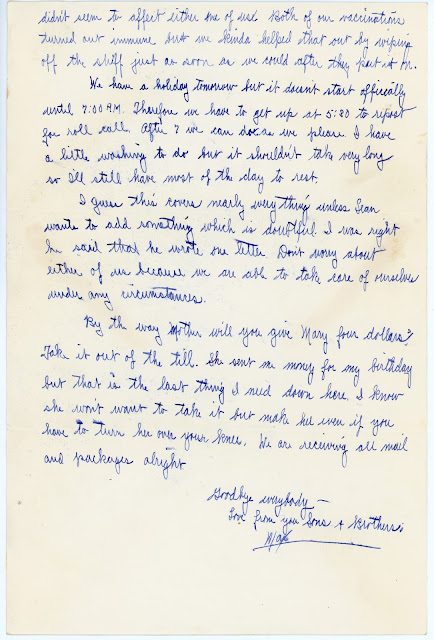 didn't seem to affect either one of us. Both of our vaccinations
turned out immune but we kinda helped that out by wiping
off the stuff just as soon as we could after they put it on.
We have a holiday tomorrow but it doesnt start offically
until 7:00 A.M. Therefore we have to get up at 5:20 to report
for roll call. After 7 we can do as we please. I have
a little washing to do but it shouldn't take very long
so I'll still have most of the day to rest.
I guess this covers nearly everything unless Sean
wants to add something which is doubtful. I was right
he said that he wrote one letter. Don't worry about
either of us because we are able to take care of ourselves
under any circumstances.
By the way Mother will you give Mary four dollars?
Take it out of the till. She sent me money for my birthday
but that is the last thing I need down here. I know
she won't want to take it but make her even if you
have to turn her over your knee. We are receiving all mail
and packages alright
Goodbye everybody —
Love from you Sons + Brothers.